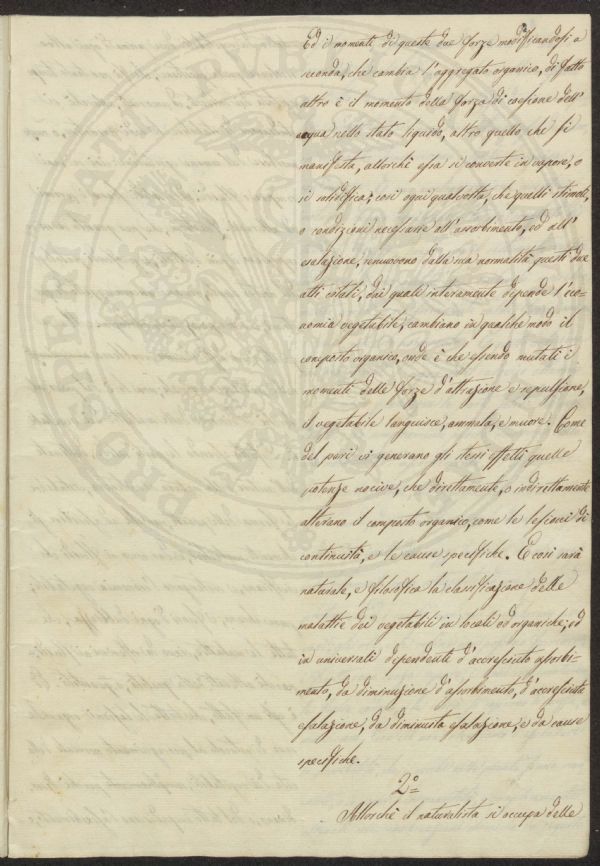 Ed i momenti di queste due forze modificandosi a
seconda, che cambia l'aggregato organico, di fatto
altro è il momento della forza di coesione dell'
acqua nello stato liquido, altro quello, che si
manifesta, allorchè essa si converte in vapore, o
si solidifica; così ogni qualvolta, che quelli stimoli,
o condizioni necessarie all'assorbimento, ed all'
esalazione, remuovono dalla sua normalità questi due
atti cotali, dai quali interamente dipende l'eco-
nomia vegetabile, cambiano in qualche modo il
composto organico, onde è che essendo mutati i
momenti delle forze d'attrazione e repulsione,
il vegetabile languisce, ammala, e muore. Come
del pari vi generano gli stessi effetti quelle
potenze nocive, che direttamente, o indirettamente
alterano il composto organico, come le lesioni di
continuità, e le cause specifiche. E così sarà
naturale, e filosofica la classificazione delle
malattie dei vegetabili in locali od organiche, ed
in universali dipendenti d'accresciuto assorbi-
mento, da diminuzione d'assorbimento, d'accresciuta
esalazione, da diminuita esalazione, e da cause
specifiche.
2°
Allorchè il naturalista si occupa delle
PUBLICAE
SOCIETAS
PROSP